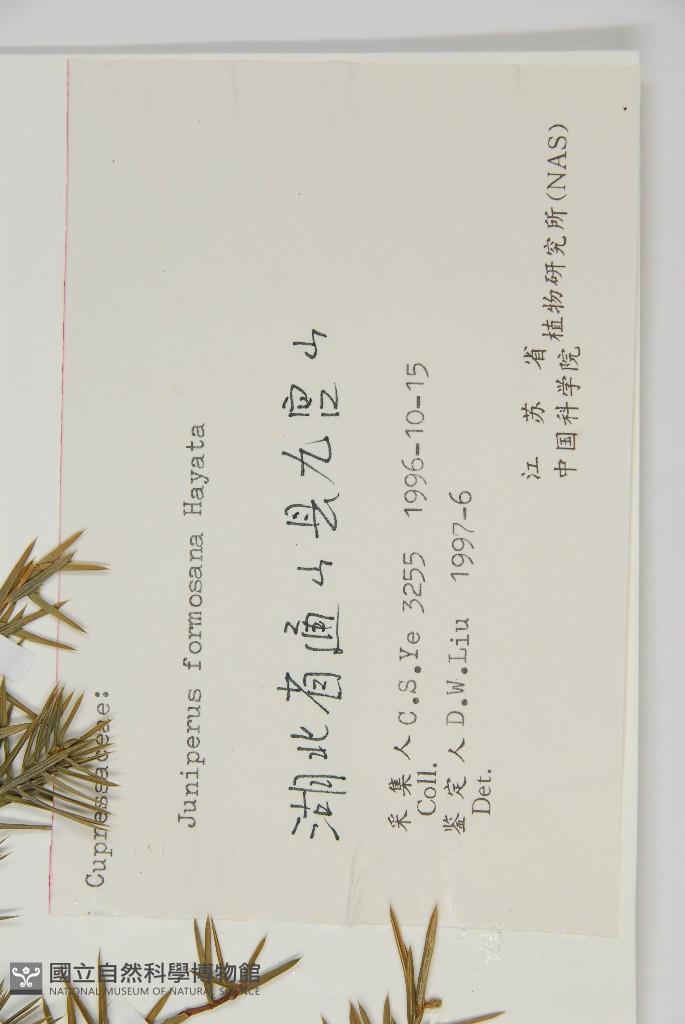 Cupressaceae:
Juniperus formosana Hayata
湖北省通山县九宫山
采集人 C.S.Ye 3255 1996-10-15
Coll.
鉴定人 D.W.Liu 1997-6
Det.
江苏省
中国科学院 植物研究所(NAS)
國立自然科學博物館
NATIONAL MUSEUM OF NATURAL SCIENCE